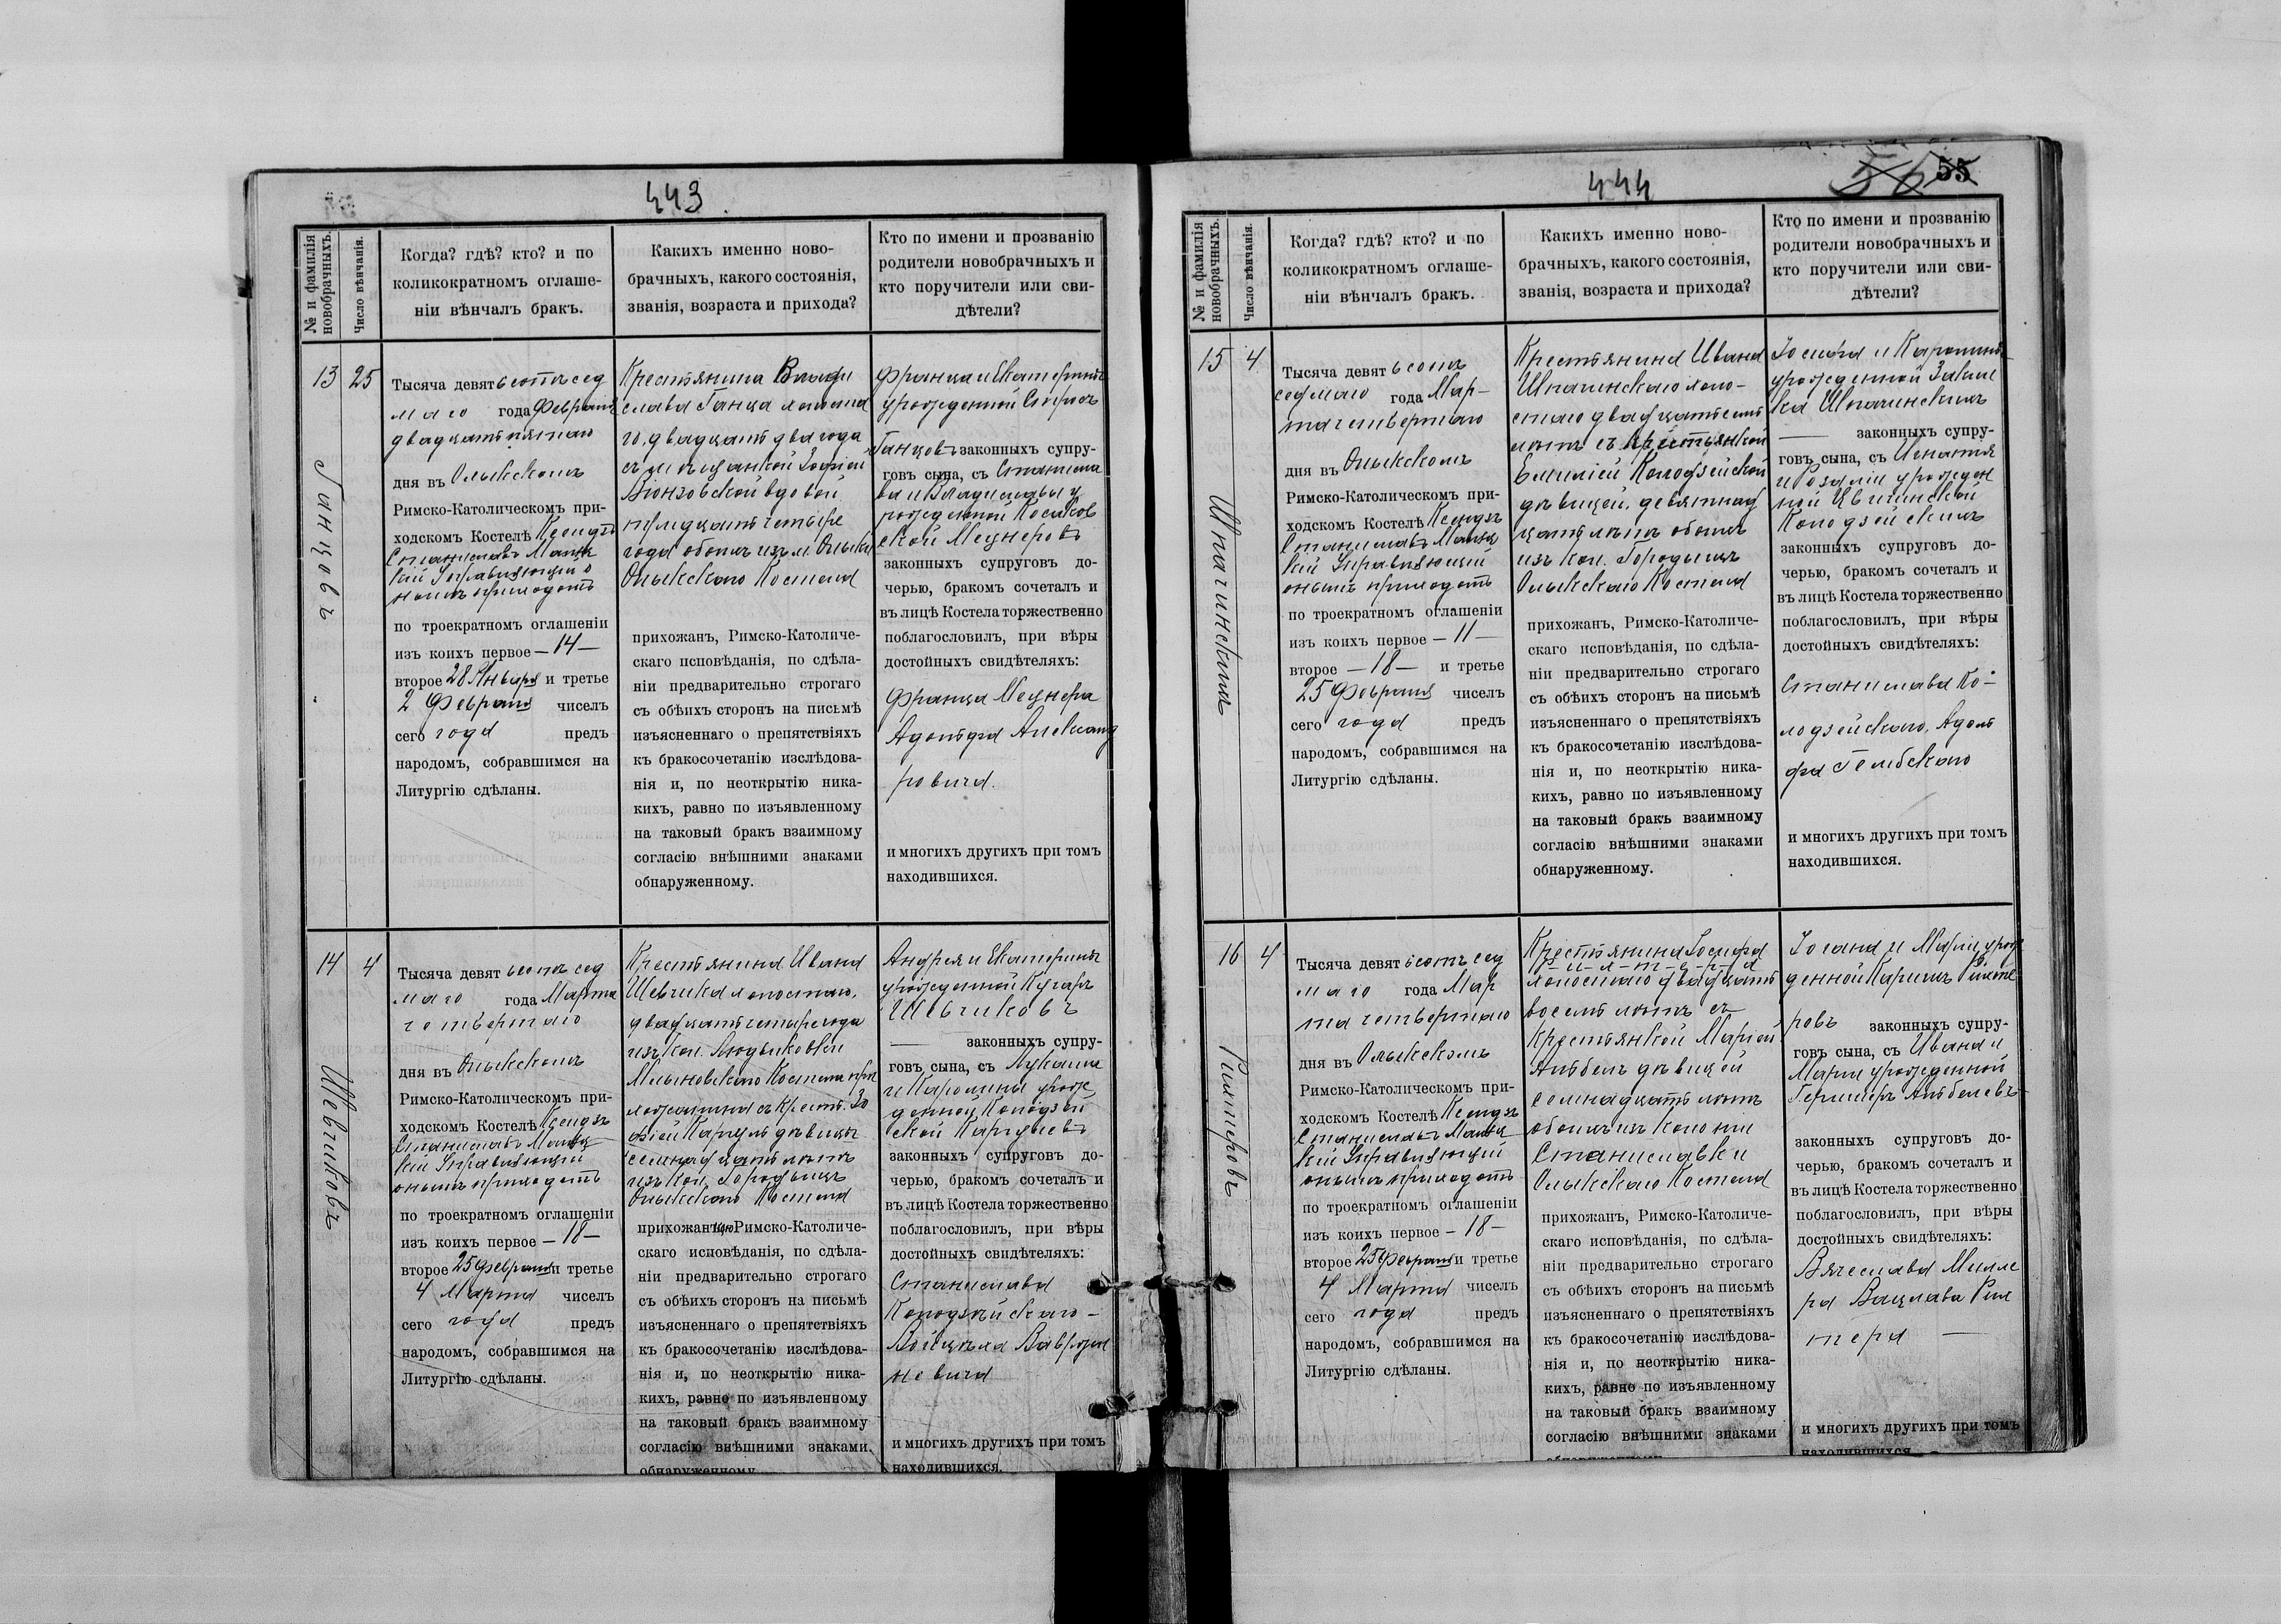 443
№ и фамилія
новобрачныхъ.
Число вѣнчанія.
Когда? гдѣ? кто? и по
коликократномъ оглаше-
ніи вѣнчалъ бракъ.
Какихъ именно ново-
брачныхъ, какого состоянія,
званія, возраста и прихода?
Кто по имени и прозванію
родители новобрачныхъ и
кто поручители или сви-
дѣтели?
13
Ганцовъ
25
Тысяча девятьсотъ сед
маго года Февраля
двадцать пятаго
дня въ Олыкскомъ
Римско-Католическомъ при-
ходскомъ Костелѣ Ксендзъ
Станиславъ
кій Управляющій о
нымъ приходомъ
по троекратномъ оглашеніи
изъ коихъ первое — 14 —
второе 28 Января и третье
2 Февраля чиселъ
сего года предъ
народомъ, собравшимся на
Литургію сдѣланы.
Крестьянина Влади
слава Ганца холоста
го, двадцать два года
съ мѣщанкой Зофіей
вдовой
тридцать четыре
года обоихъ изъ м. Олыки
Олыкскаго Костела
прихожанъ, Римско-Католиче-
скаго исповѣданія, по сдѣла-
ніи предварительно строгаго
съ обѣихъ сторонъ на письмѣ
изъясненнаго о препятствіяхъ
къ бракосочетанію изслѣдова-
нія и, по неоткрытію ника-
кихъ, равно по изъявленному
на таковый бракъ взаимному
согласію внѣшними знаками
обнаруженному.
Франца и Екатерины
урожденной
Ганцовъ законныхъ супру-
говъ сына, съ Станисла
ва и Владиславы у
рожденной Косаков
ской Мецнеровъ
законныхъ супруговъ до-
черью, бракомъ сочеталъ и
въ лицѣ Костела торжественно
поблагословилъ, при вѣры
достойныхъ свидѣтеляхъ:
Франца Мецнера
Адольфа Александ
ровича.
и многихъ другихъ при томъ
находившихся.
14
Шевчиковъ
4
Тысяча девятьсотъ сед
маго года Марта
четвертаго
дня въ Олыкскомъ
Римско-Католическомъ при-
ходскомъ Костелѣ Ксендзъ
Станиславъ
кій Управляющій
онымъ приходомъ
по троекратномъ оглашеніи
изъ коихъ первое — 18 —
второе 25 Февраля и третье
4 Марта чиселъ
сего года предъ
народомъ, собравшимся на
Литургію сдѣланы.
Крестьянина Ивана
Шевчика холостаго,
двадцать четыре года
изъ кол. Людвиковки
Млыновскаго Костела при
хожанина съ Крест. Зо
фіей Каргуль дѣвицей
семнадцать лѣтъ
изъ кол. Городыщъ
Олыкскаго Костела
прихожан Римско-Католиче-
скаго исповѣданія, по сдѣла-
ніи предварительно строгаго
съ обѣихъ сторонъ на письмѣ
изъясненнаго о препятствіяхъ
къ бракосочетанію изслѣдова-
нія и, по неоткрытію ника-
кихъ, равно по изъявленному
на таковый бракъ взаимному
согласію внѣшними знаками
обнаруженному
Андрея и Екатерины
урожденной Кухаръ
Шевчиковъ
— законныхъ супру-
говъ сына, съ Лукаша
и Каролины урож
денной Колодзей
ской Каргулевъ
законныхъ супруговъ до-
черью, бракомъ сочеталъ и
въ лицѣ Костела торжественно
поблагословилъ, при вѣры
достойныхъ свидѣтеляхъ:
Станислава
Колодзѣйскаго —
Войцѣха Вавржи
невича
и многихъ другихъ при томъ
находившихся.
444
56 55
№ и фамилія
новобрачныхъ.
Число вѣнчанія.
Когда? гдѣ? кто? и по
коликократномъ оглаше-
ніи вѣнчалъ бракъ.
Какихъ именно ново-
брачныхъ, какого состоянія,
званія, возраста и прихода?
Кто по имени и прозванію
родители новобрачныхъ и
кто поручители или сви-
дѣтели?
15
Шпачинскихъ
4
Тысяча девятьсотъ
седмаго года Мар-
та четвертаго
дня въ Олыкскомъ
Римско-Католическомъ при-
ходскомъ Костелѣ Ксендзъ
Станиславъ
кій Управляющій
онымъ приходомъ
по троекратномъ оглашеніи
изъ коихъ первое — 11 —
второе — 18 — и третье
25 Февраля чиселъ
сего года предъ
народомъ, собравшимся на
Литургію сдѣланы.
Крестьянина Ивана
Шпачинскаго холо-
стаго двадцать семь
лѣтъ съ крестьянкой
Емиліей Колодзейской
дѣвицей, девятнад
цать лѣтъ обоихъ
изъ кол. Городыщъ
Олыкскаго Костела
прихожанъ, Римско-Католиче-
скаго исповѣданія, по сдѣла-
ніи предварительно строгаго
съ обѣихъ сторонъ на письмѣ
изъясненнаго о препятствіяхъ
къ бракосочетанію изслѣдова-
нія и, по неоткрытію ника-
кихъ, равно по изъявленному
на таковый бракъ взаимному
согласію внѣшними знаками
обнаруженному.
Іосифа и Каролины
урожденной
Шпачинскихъ
— законныхъ супру-
говъ сына, съ Игнатія
и Розаліи урожден
ной
Колодзейскихъ
законныхъ супруговъ до-
черью, бракомъ сочеталъ и
въ лицѣ Костела торжественно
поблагословилъ, при вѣры
достойныхъ свидѣтеляхъ:
Станислава Ко-
лодзейскаго, Адоль
фа Гембскаго
и многихъ другихъ при томъ
находившихся.
16
Рихтеровъ
4
Тысяча девятьсотъ сед
маго года Мар
та четвертаго
дня въ Олыкскомъ
Римско-Католическомъ при-
ходскомъ Костелѣ Ксендзъ
Станиславъ
кій Управляющій
онымъ приходомъ
по троекратномъ оглашеніи
изъ коихъ первое — 18 —
второе 25 Февраля и третье
4 Марта чиселъ
сего года предъ
народомъ, собравшимся на
Литургію сдѣланы.
Крестьянина Іосифа
Р-и-х-т-е-р-а
холостаго двадцать
восемь лѣтъ съ
крестьянкой Маріей
Айбель дѣвицей
семнадцать лѣтъ
обоихъ изъ колоніи
Станиславки
Олыкскаго Костела
прихожанъ, Римско-Католиче-
скаго исповѣданія, по сдѣла-
ніи предварительно строгаго
съ обѣихъ сторонъ на письмѣ
изъясненнаго о препятствіяхъ
къ бракосочетанію изслѣдова-
нія и, по неоткрытію ника-
кихъ, равно по изъявленному
на таковый бракъ взаимному
согласію внѣшними знаками
Іогана и Маріи урож
денной Рихте
ровъ законныхъ супру-
говъ сына, съ Ивана и
Маріи урожденной
Айбелевъ
законныхъ супруговъ до-
черью, бракомъ сочеталъ и
въ лицѣ Костела торжественно
поблагословилъ, при вѣры
достойныхъ свидѣтеляхъ:
Вячеслава Милле
ра Вацлава Рих
тера —
и многихъ другихъ при томъ
находившихся